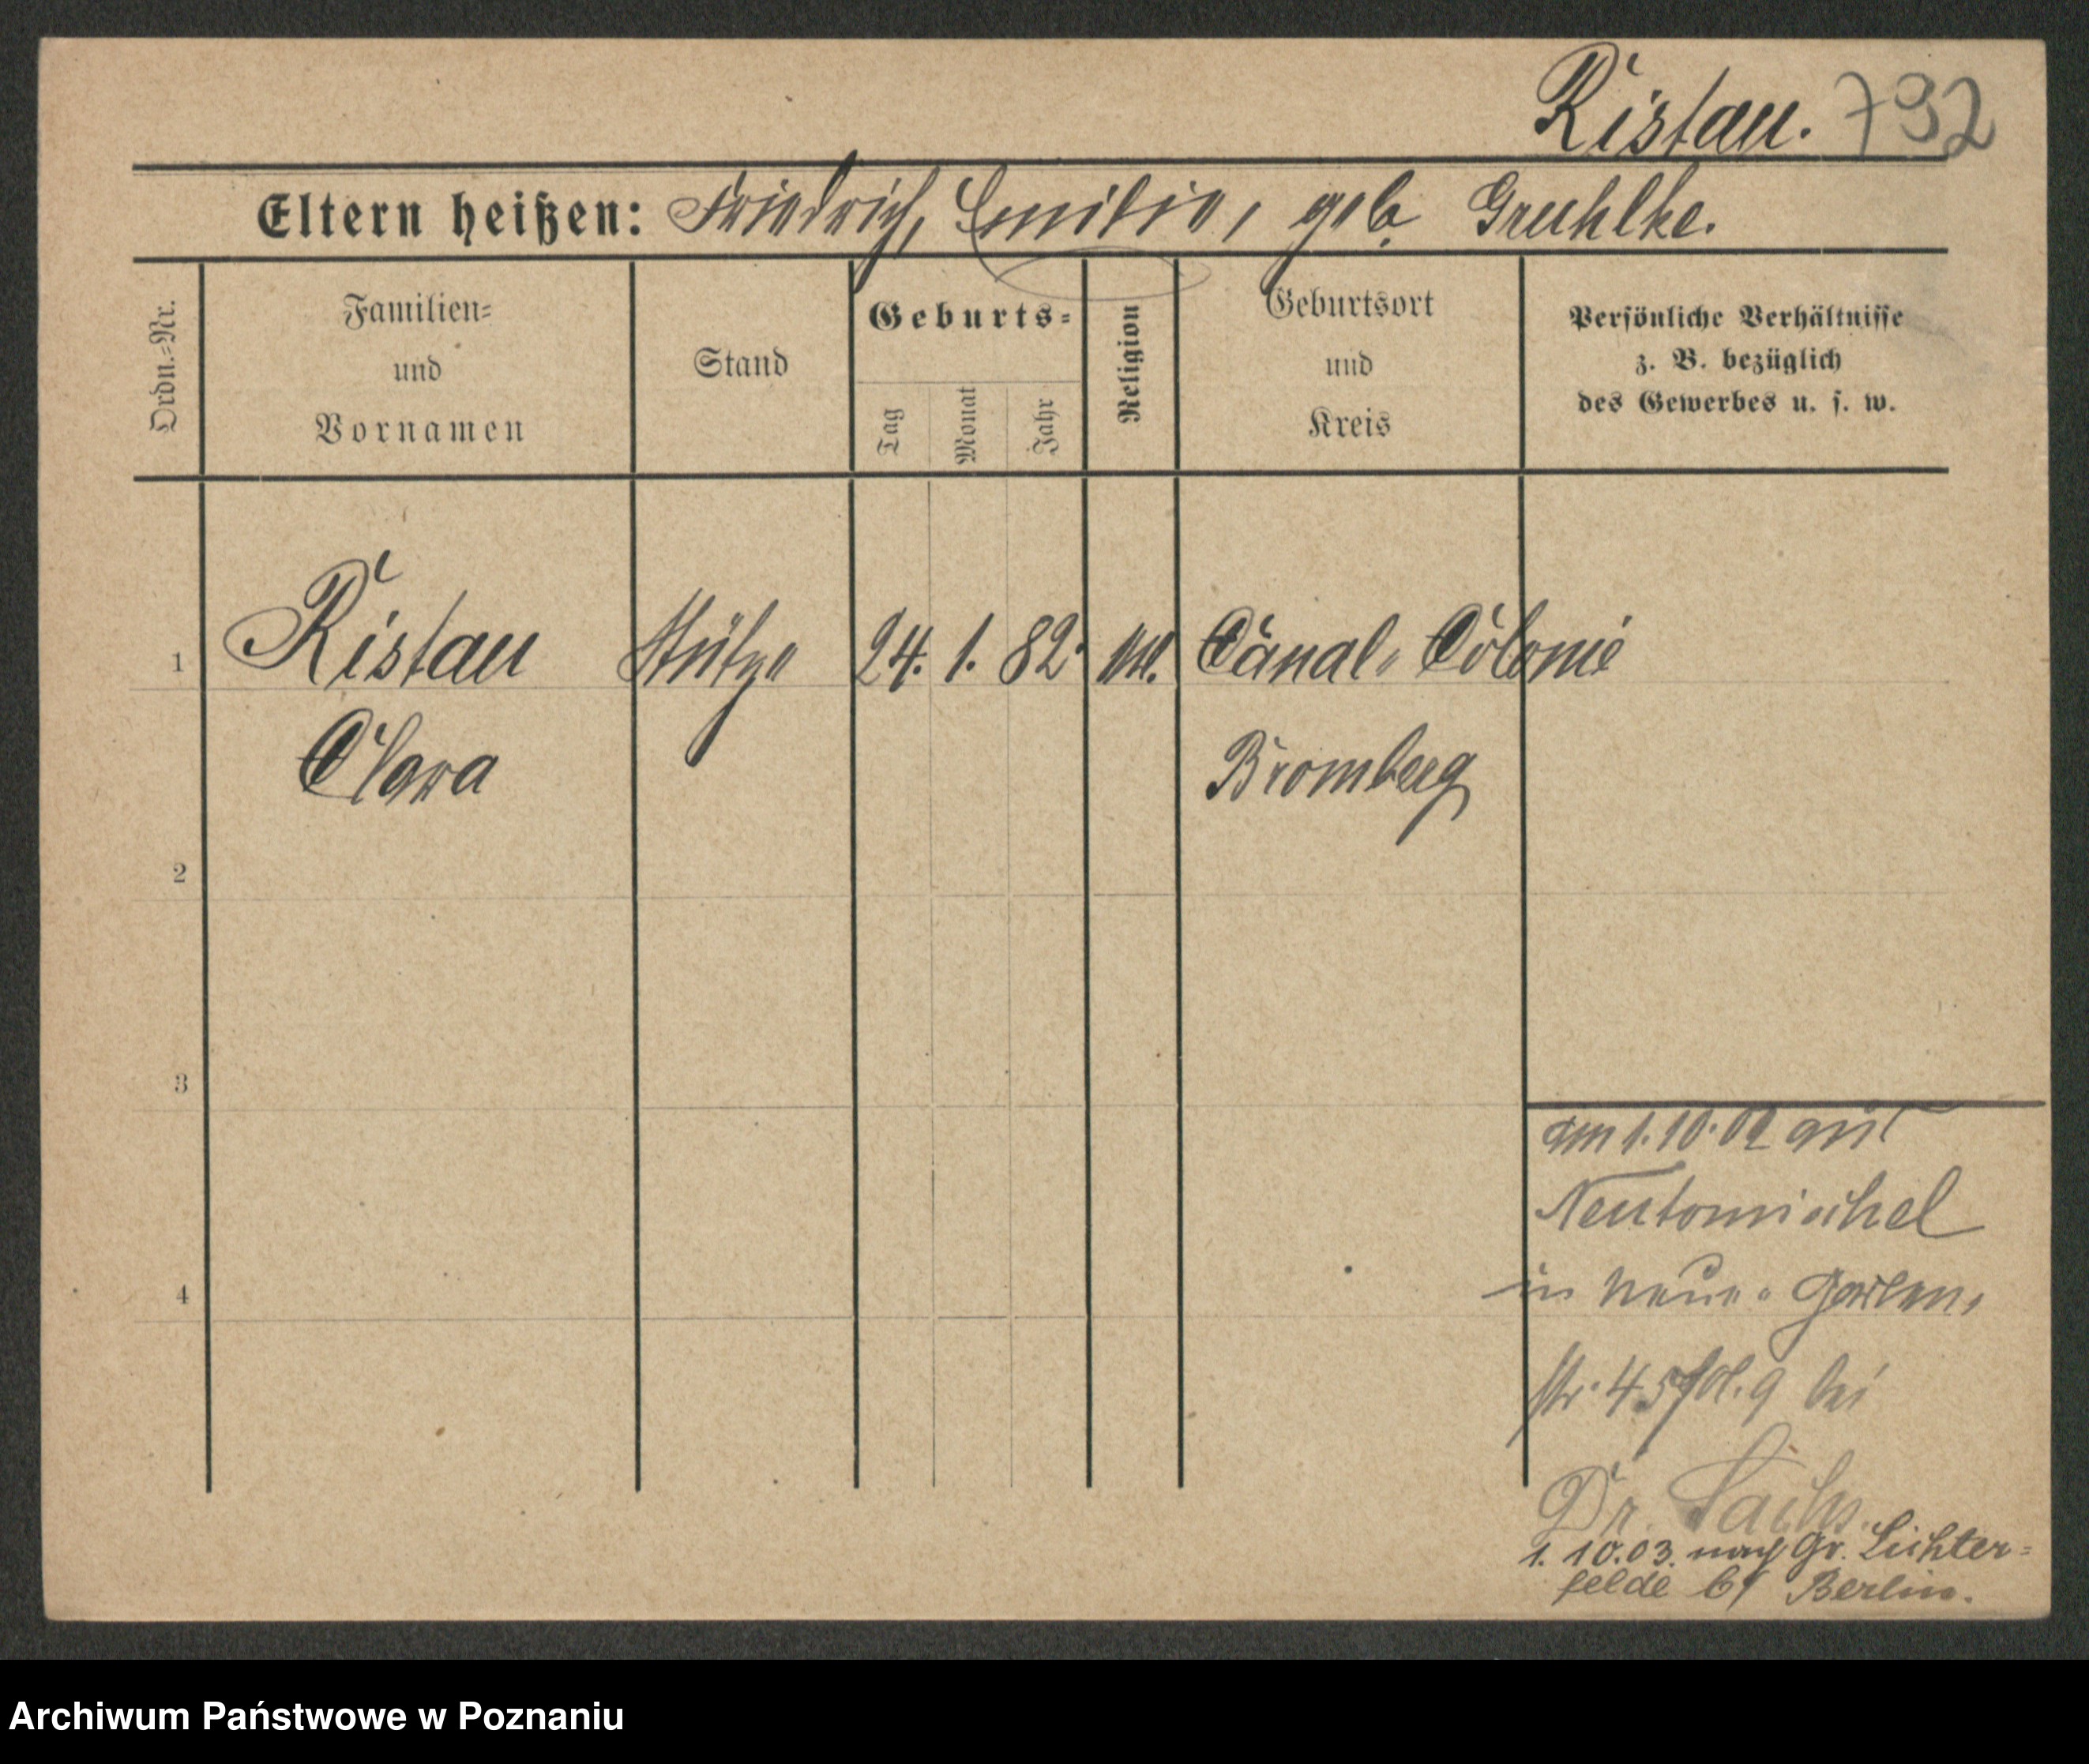 Ristau. 792
Eltern heißen: Friedrich, Emilie, geb. Gruhlke.
Ordn.-Nr.
Familien-
und
Vornamen
Stand
Geburts-
Tag
Monat
Jahr
Religion
Geburtsort
und
Kreis
Persönliche Verhältnisse
z. B. bezüglich
des Gewerbes u. s. w.
1 Ristau Stütze 24. 1. 82. Canal-Colonie
Clara Bromberg
2
3
4
am 1.10.02 aus
Neutomischel
in Neue-Garten-
str. 45 bei
Dr. Sachs.
1. 10.03. nach Gr. Lichter-
felde b/ Berlin.
Archiwum Państwowe w Poznaniu